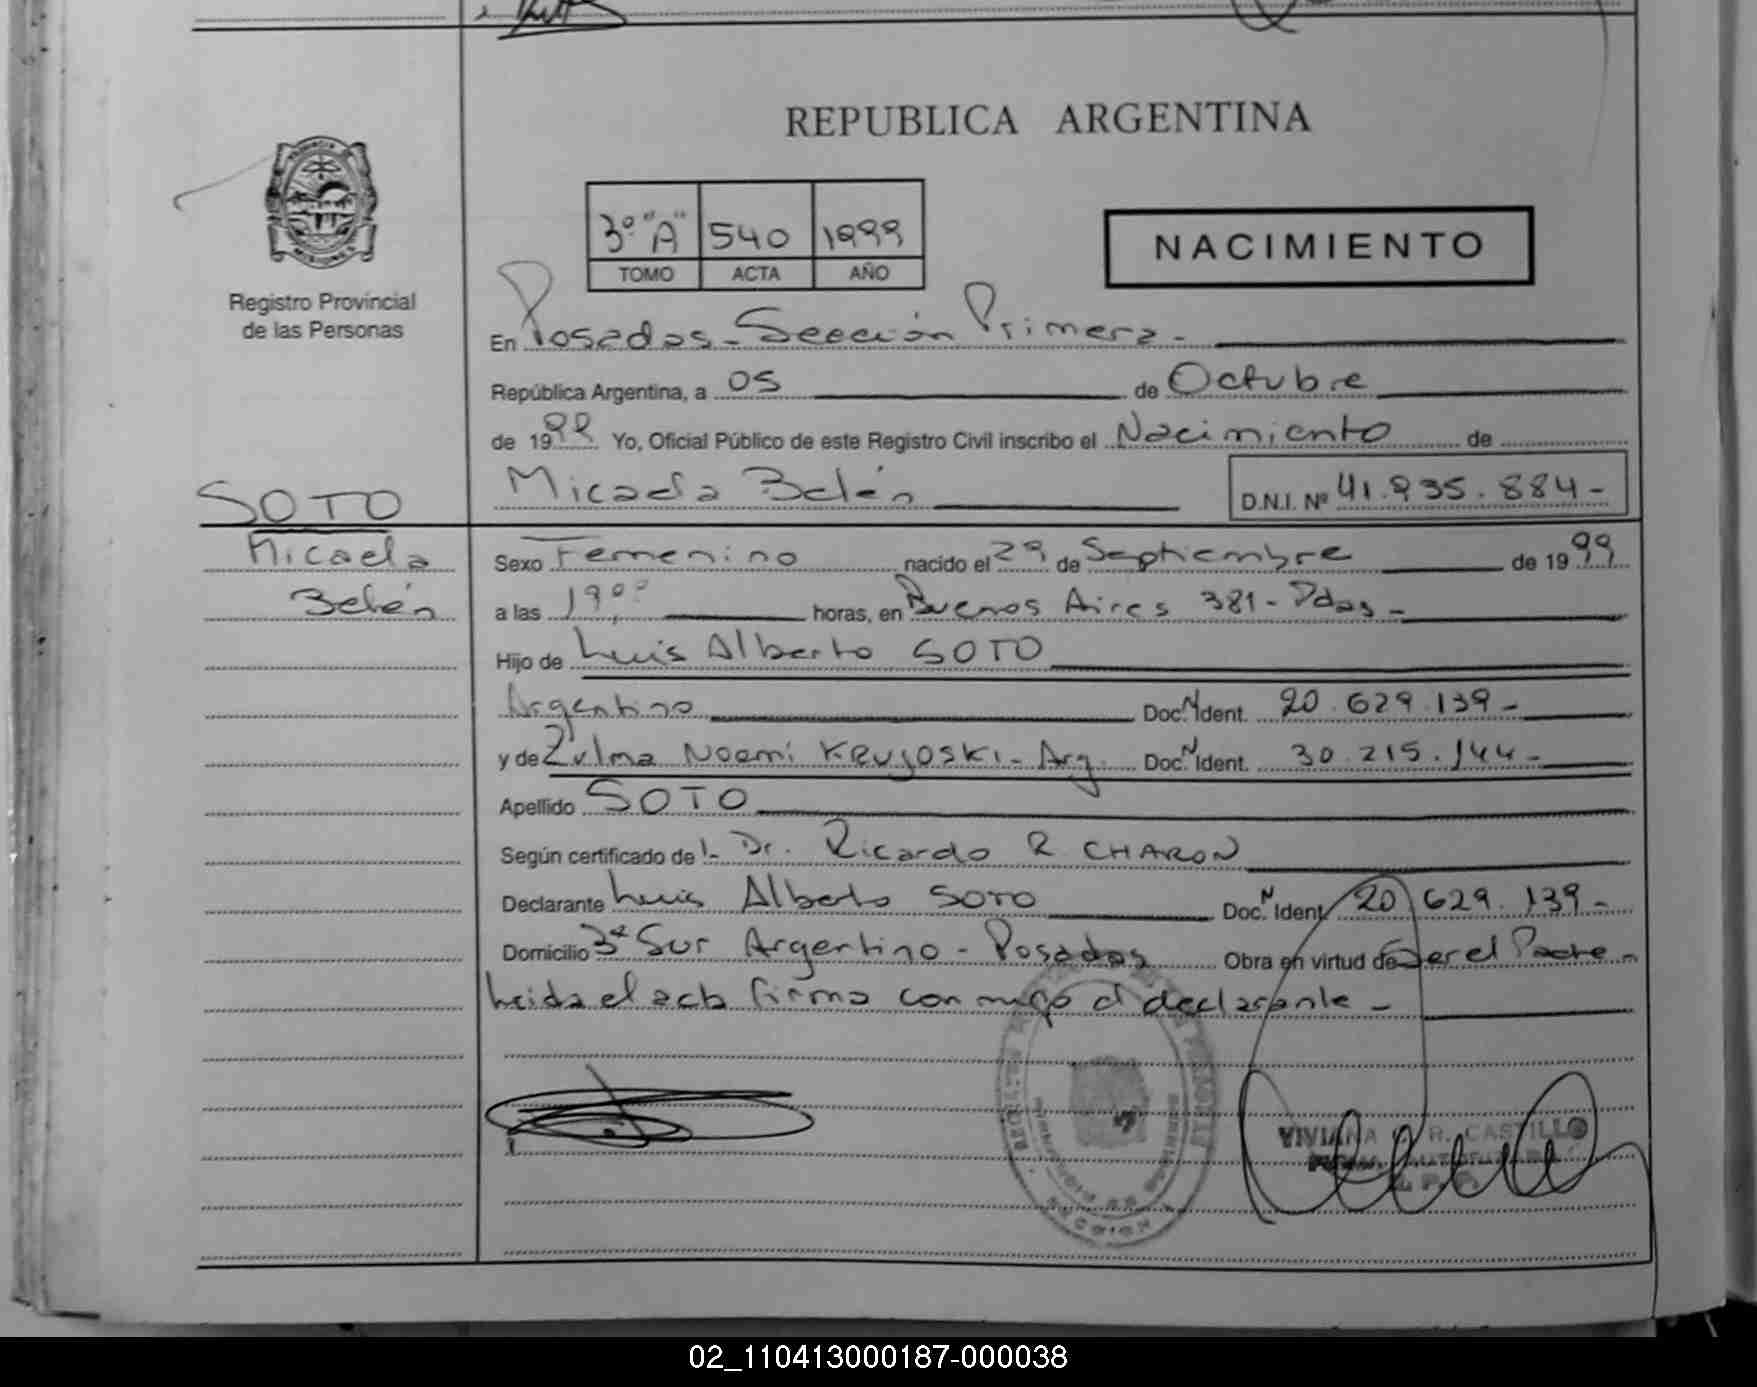 REPUBLICA ARGENTINA
3º "A" 540 1999
TOMO ACTA AÑO
NACIMIENTO
Registro Provincial
de las Personas
En Posadas - Sección Primera -
República Argentina, a 05 de Octubre
de 1999 Yo, Oficial Público de este Registro Civil inscribo el Nacimiento de
Micaela Belén D.N.I. Nº 41.935.884-
SOTO
Micaela
Belén
Sexo Femenino nacido el 29 de Septiembre de 1999
a las 19:00 horas, en Buenos Aires 381 - Pdas -
Hijo de Luis Alberto SOTO
Argentino Doc. N Ident. 20.629.139-
y de Zulma Noemí KRUJOSKI - Arg. Doc. N Ident. 30.215.144-
Apellido SOTO
Según certificado de l- Dr. Ricardo R CHARON
Declarante Luis Alberto SOTO Doc. N Ident. 20.629.139-
Domicilio 3* Sur Argentino - Posadas Obra en virtud de Ser el Padre -
Leida el acta firma conmigo el declarante -
VIVIANA R. CASTILLO
02_110413000187-000038